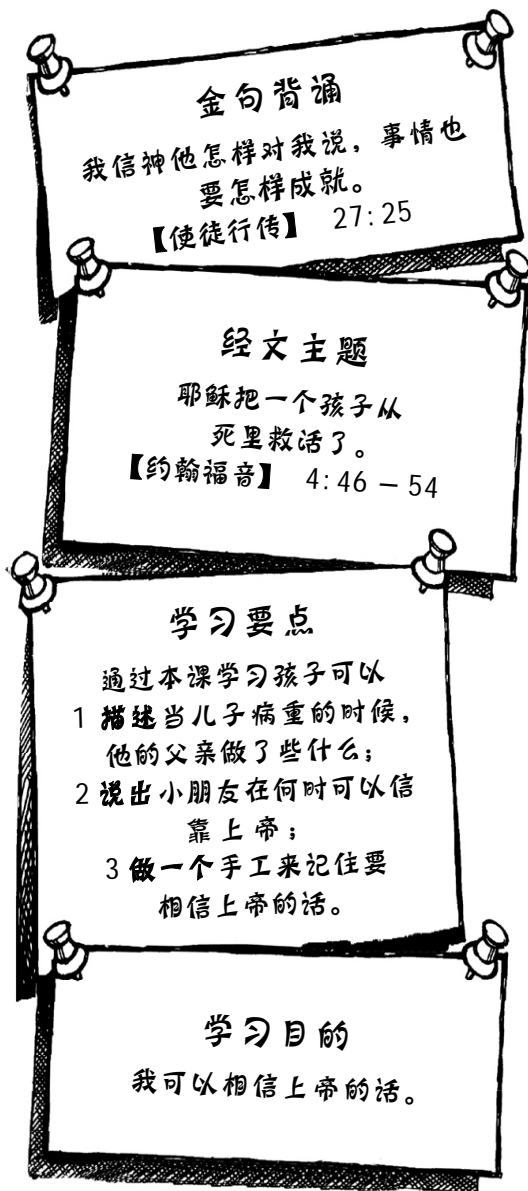 金句背诵
我信神他怎样对我说，事情也
要怎样成就。
【使徒行传】 27:25
经文主题
耶稣把一个孩子从
死里救活了。
【约翰福音】 4:46－54
学习要点
通过本课学习孩子可以
1 描述当儿子病重的时候，
他的父亲做了些什么；
2 说出小朋友在何时可以信
靠上帝；
3 做一个手工来记住要
相信上帝的话。
学习目的
我可以相信上帝的话。